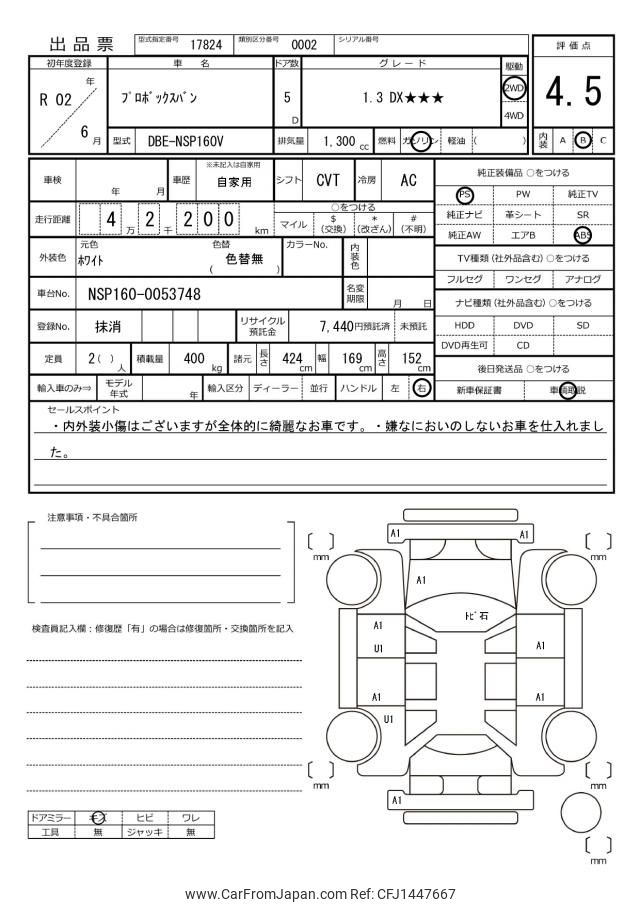 出品票
型式指定番号 17824 類別区分番号 0002 シリアル番号
評価点
4.5
内装 A B C
初年度登録 車名 ドア数 グレード 駆動
R 02 年 6 月
ﾌﾟﾛﾎﾞｯｸｽﾊﾞﾝ 5 D 1.3 DX★★★ 2WD 4WD
型式 DBE-NSP160V 排気量 1,300 cc 燃料 ガソリン 軽油 ( )
車検 年 月 車歴 ※未記入は自家用 自家用 シフト CVT 冷房 AC
走行距離 4 万 2 千 2 0 0 km
○をつける
マイル $ (交換) * (改ざん) # (不明)
外装色 元色 ﾎﾜｲﾄ 色替 ( 色替無 ) カラーNo. 内装色
車台No. NSP160-0053748 名変期限 月 日
登録No. 抹消 リサイクル預託金 7,440円預託済 未預託
定員 2( ) 人 積載量 400 kg 諸元 長さ 424 cm 幅 169 cm 高さ 152 cm
輸入車のみ⇒ モデル年式 年 輸入区分 ディーラー 並行 ハンドル 左 右
純正装備品 ○をつける
PS PW 純正TV
純正ナビ 革シート SR
純正AW エアB ABS
TV種類 (社外品含む) ○をつける
フルセグ ワンセグ アナログ
ナビ種類 (社外品含む) ○をつける
HDD DVD SD
DVD再生可 CD
後日発送品 ○をつける
新車保証書 車輌取説
セールスポイント
・内外装小傷はございますが全体的に綺麗なお車です。・嫌なにおいのしないお車を仕入れまし
た。
注意事項・不具合箇所
検査員記入欄：修復歴「有」の場合は修復箇所・交換箇所を記入
ドアミラー キズ ヒビ ワレ
工具 無 ジャッキ 無
mm
A1
A1
mm
A1
ﾄﾋﾞ石
A1
U1
A1
A1
A1
U1
mm
mm
A1
mm
www.CarFromJapan.com Ref: CFJ1447667